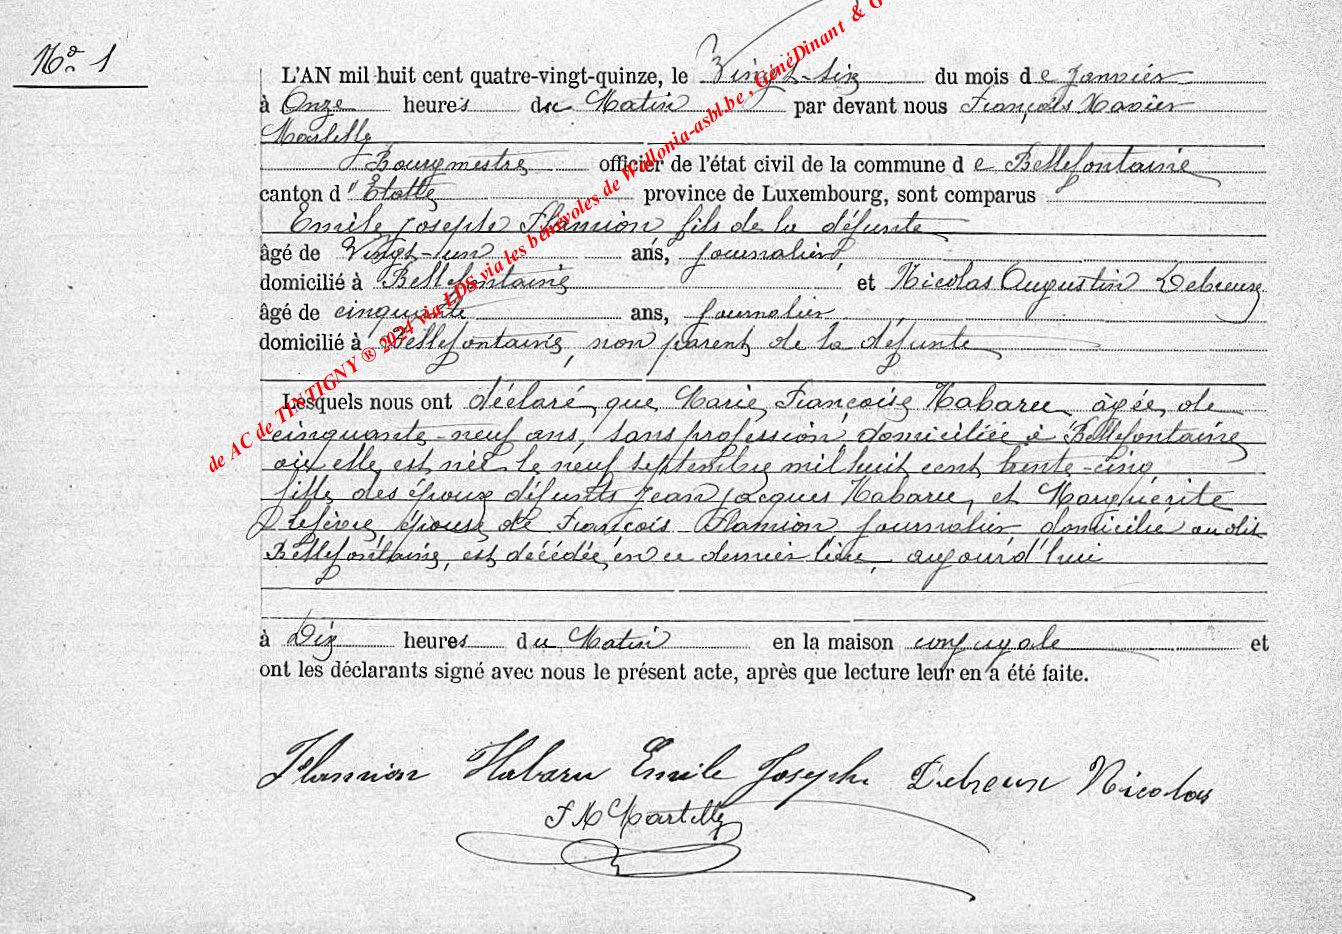 No 1
L'AN mil huit cent quatre-vingt-quinze, le Vingt-six du mois de Janvier
à Onze heures du Matin par devant nous François Xavier
Martilly
Bourgmestre officier de l'état civil de la commune de Bellefontaine
canton d'Etalle province de Luxembourg, sont comparus
Emile Joseph Flamion fils de la défunte
âgé de Vingt-un ans, journalier
domicilié à Bellefontaine et Nicolas Augustin Debreux
âgé de cinquante ans, journalier
domicilié à Bellefontaine, non parent de la défunte
Lesquels nous ont déclaré que Marie Françoise Habaru âgée de
cinquante-neuf ans, sans profession, domiciliée à Bellefontaine
où elle est née le neuf septembre mil huit cent trente-cinq
fille des époux défunts Jean Jacques Habaru et Marguérite
Lefèvre, épouse de François Flamion journalier domicilié au dit
Bellefontaine, est décédée en ce dernier lieu, aujourd'hui
à Dix heures du Matin en la maison conjugale et
ont les déclarants signé avec nous le présent acte, après que lecture leur en a été faite.
Flamion Habaru Emile Joseph Debreux Nicolas
F X Martilly
de AC de TINTIGNY ® 2024 via LDS via les bénévoles de Wallonia-asbl.be , GénéDinant & G